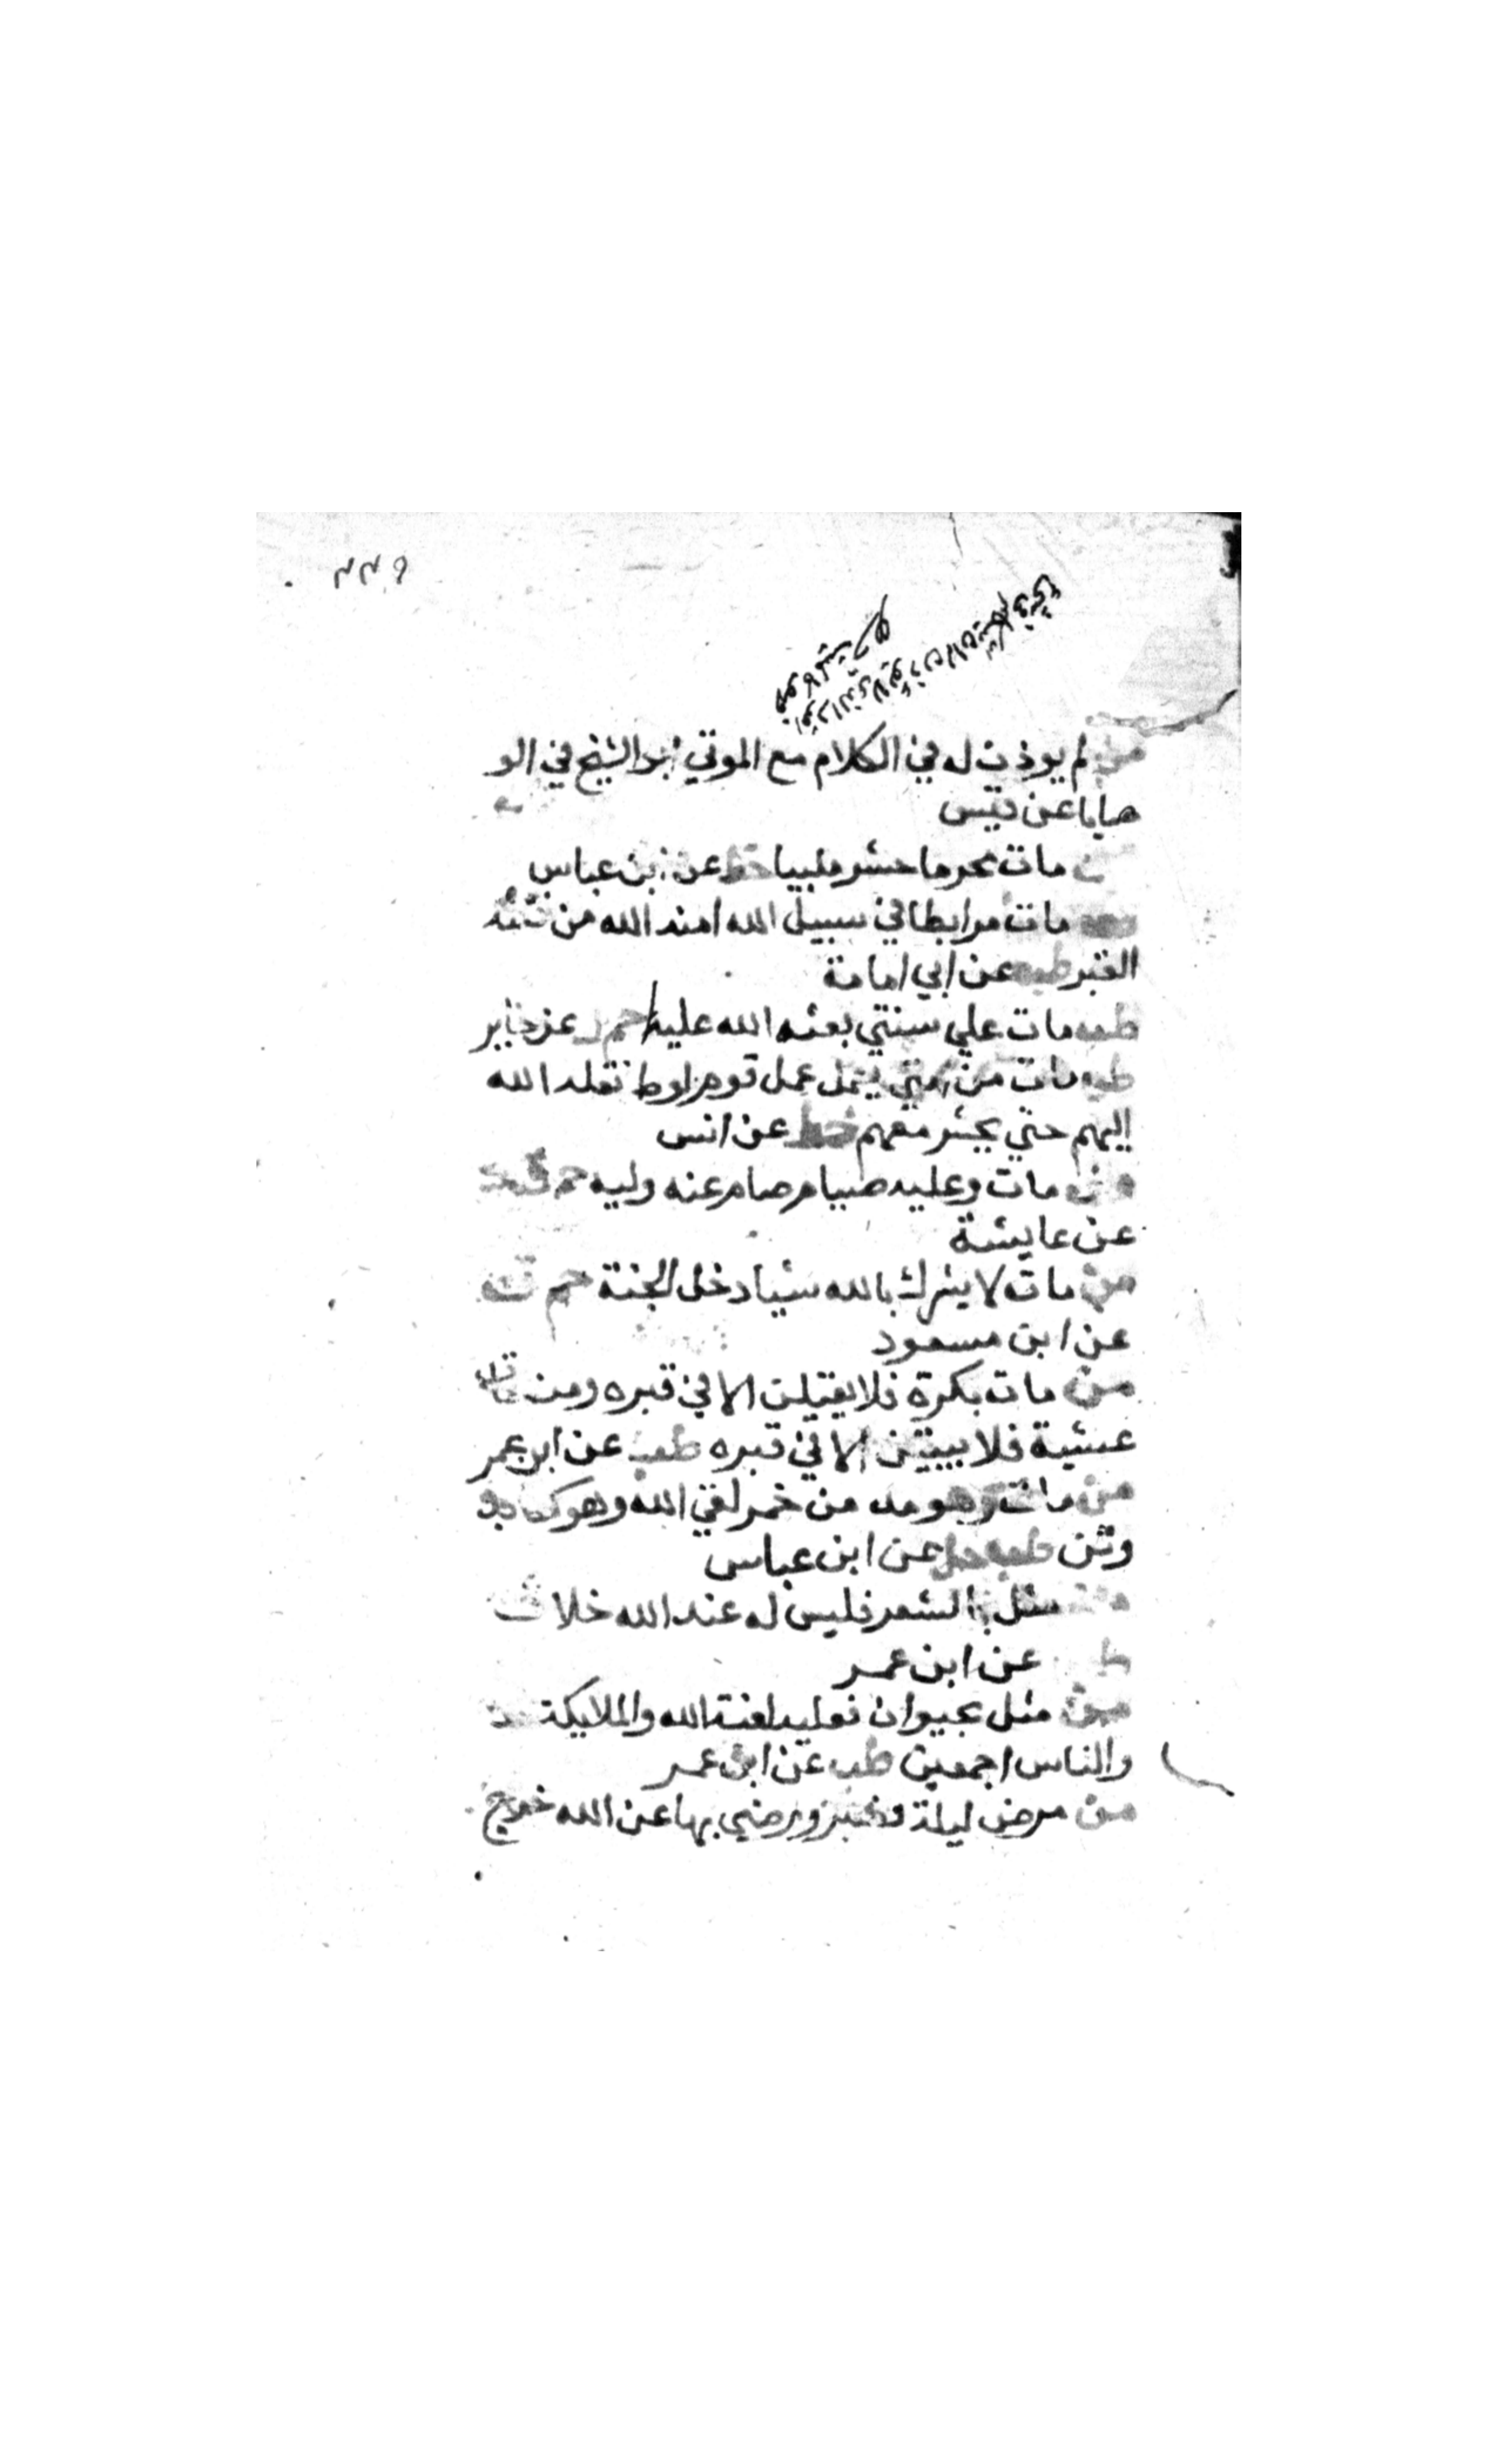 ٢٢٩
من لم يوذن له في الكلام مع الموتي ابو الشيخ في الو
صايا عن قيس
من مات محرما حشر ملبيا خط عن ابن عباس
من مات مرابطا في سبيل الله امنه الله من فتنة
القبر طب عن ابي امامة
من مات علي شي بعثه الله عليه حم ك عن جابر
من مات من امتي يعمل عمل قوم لوط نقله الله
اليهم حتي يحشر معهم خط عن انس
من مات وعليه صيام صام عنه وليه حم ق د
عن عايشة
من مات لا يشرك بالله شيا دخل الجنة حم ق
عن ابن مسعود
من مات بكرة فلا يقيلن الا في قبره ومن مات
عشية فلا يبيتن الا في قبره طب عن ابن عمر
من مات وهو مدمن خمر لقي الله وهو كعابد
وثن طب حل عن ابن عباس
من مثل بالشعر فليس له عند الله خلاق
طب عن ابن عمر
من مثل بحيوان فعليه لعنة الله والملايكة
والناس اجمعين طب عن ابن عمر
من مرض ليلة فصبر ورضي بها عن الله خرج